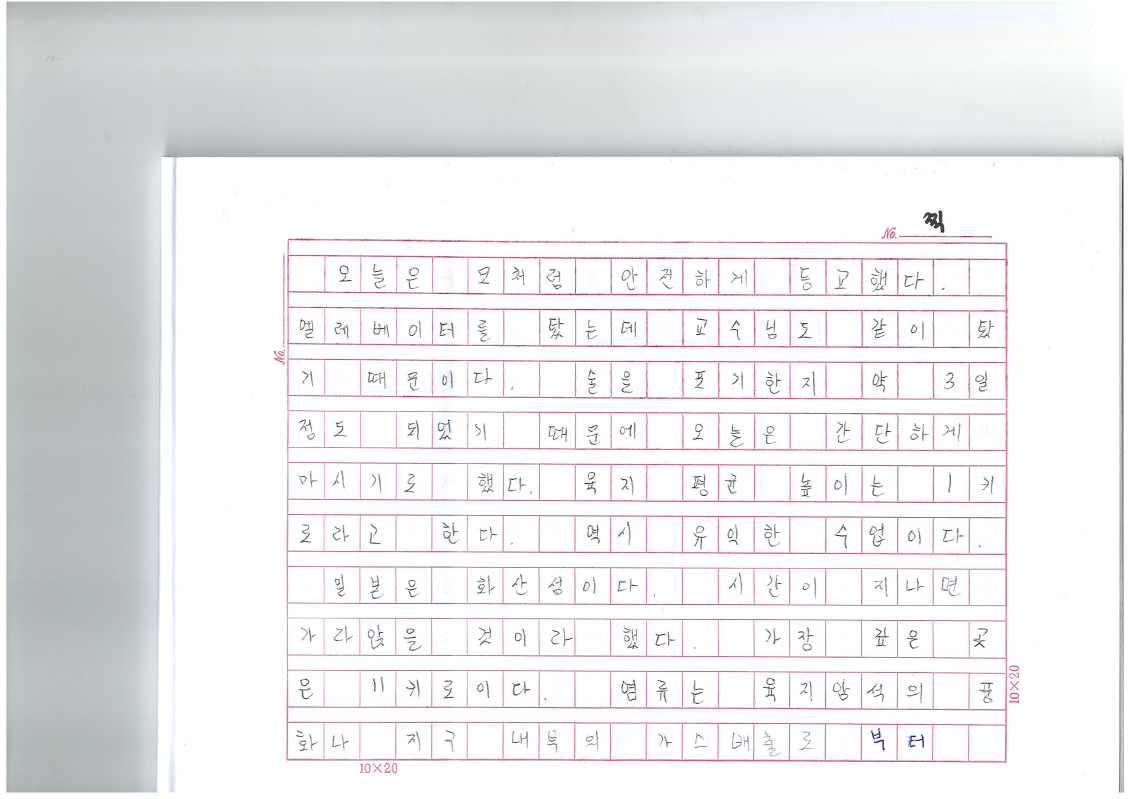 No. 찍
오늘은 모처럼 안전하게 등교했다.
엘레베이터를 탔는데 교수님도 같이 탔
기 때문이다. 술을 포기한지 약 3일
정도 되었기 때문에 오늘은 간단하게
마시기로 했다. 육지 평균 높이는 1키
로라고 한다. 역시 유익한 수업이다.
일본은 화산섬이다. 시간이 지나면
가라앉을 것이라 했다. 가장 깊은 곳
은 11키로이다. 염류는 육지암석의 풍
화나 지구 내부의 가스배출로 부터
No.
10×20
10×20